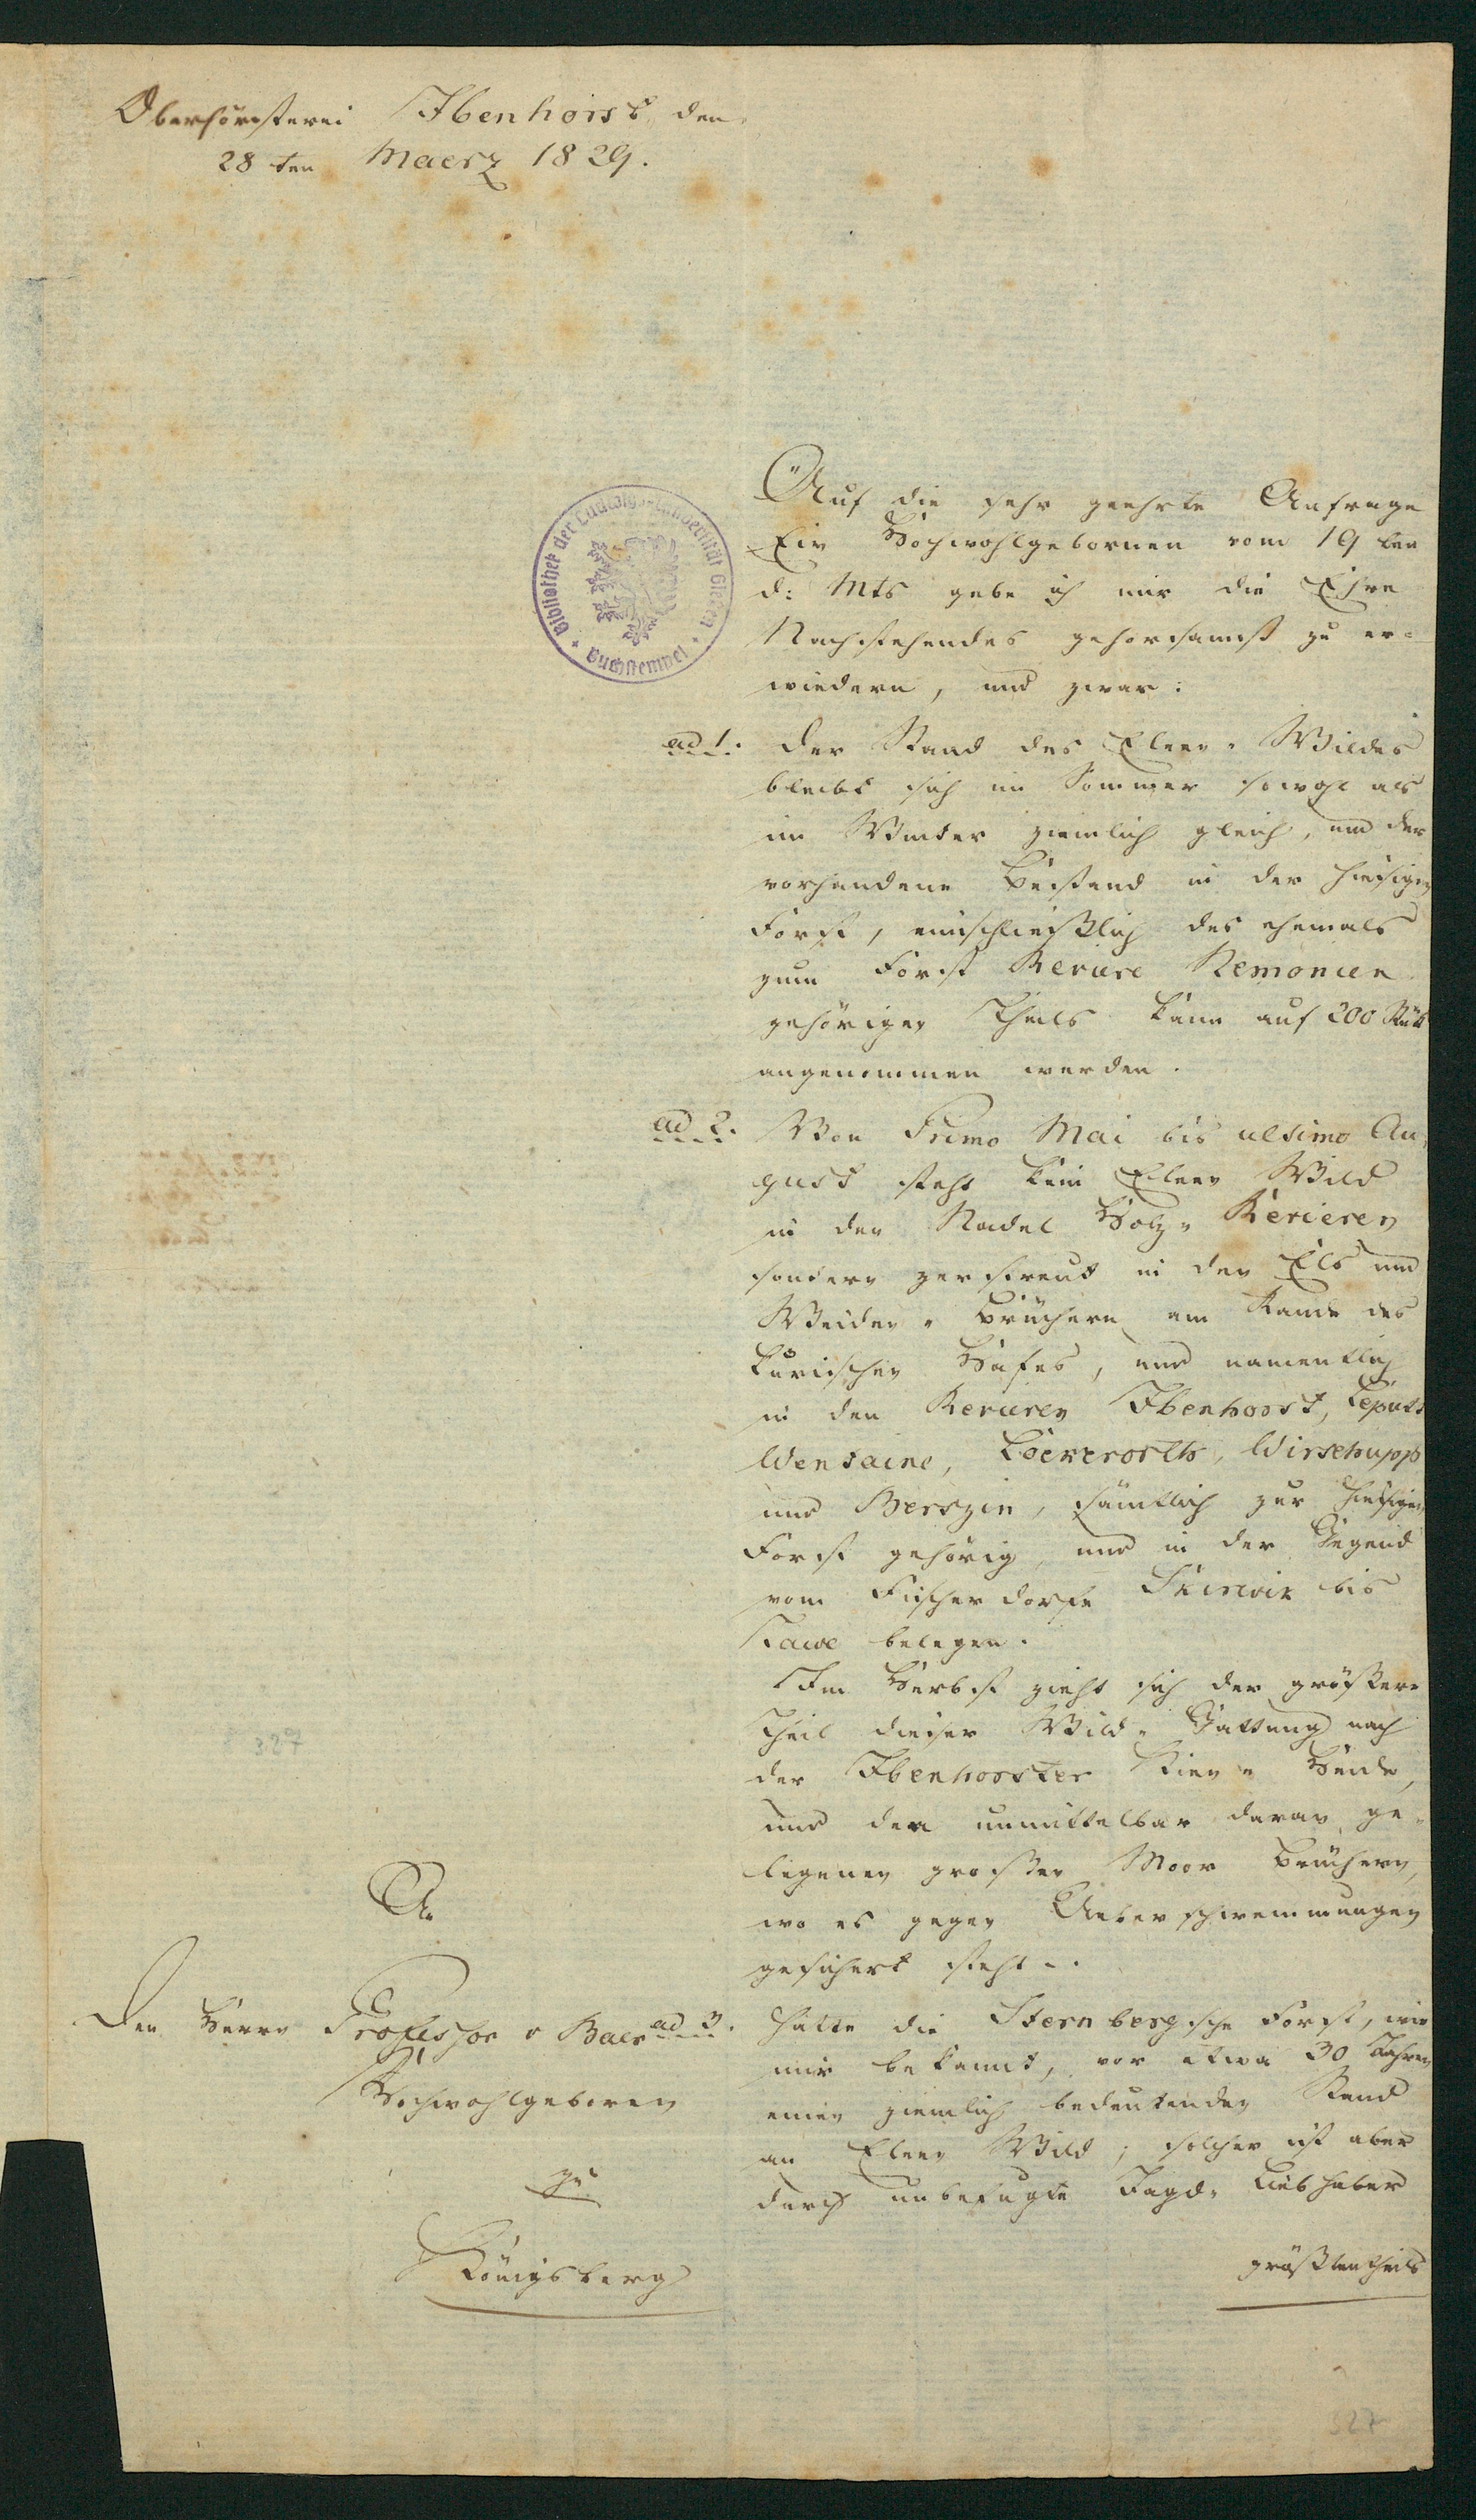 Oberförsterei Ibenhorst den
28 ten Maerz 1829.
Auf die sehr geehrte Anfrage
Ew Hochwohlgebornen vom 19 ten
d: Mts gebe ich mir die Ehre
Nachstehendes gehorsamst zu er-
wiedern, und zwar:
ad 1. Der Stand des Elenn-Wildes
bleibt sich im Sommer sowohl als
im Winter ziemlich gleich, und der
vorhandene Bestand in der hiesigen
Forst, einschließlich des ehemals
zum Forst Reviere Nemonien
gehörigen Theils kann auf 200 Stück
angenommen werden.
ad 2. Von Primo Mai bis ultimo Au-
gust steht kein Elenn Wild
in den Nadel Holz-Revieren
sondern zerstreut in den Els und
Weiden-Brüchern am Rande des
Kurischen Hafes, und namentlich
in den Revieren Ibenhorst,
Wensaine, Loekerorth, Wirschupp
und Berszin, sämtlich zur hiesigen
Forst gehörig, und in der Gegend
vom Fischerdorfe Skirwik bis
Tawe belegen.
Im Herbst zieht sich der größere
Theil dieser Wild-Gattung nach
der Ibenhorster Kien-Heide,
und den unmittelbar daran ge-
legenen großen Moor Brüchern,
wo es gegen Ueberschwemmungen
gesichert steht.
ad 3. Hatte die Sternbergsche Forst, wie
mir bekannt, vor etwa 30 Jahren
einen ziemlich bedeutenden Stand
an Elenn Wild; solcher ist aber
durch unbefugte Jagd-Liebhaber
größtentheils
An
Den Herrn Professor v Baer
Hochwohlgeboren
zu
Königsberg
Bibliothek der Ludwigs-Universität Gießen
Buchstempel
327
327